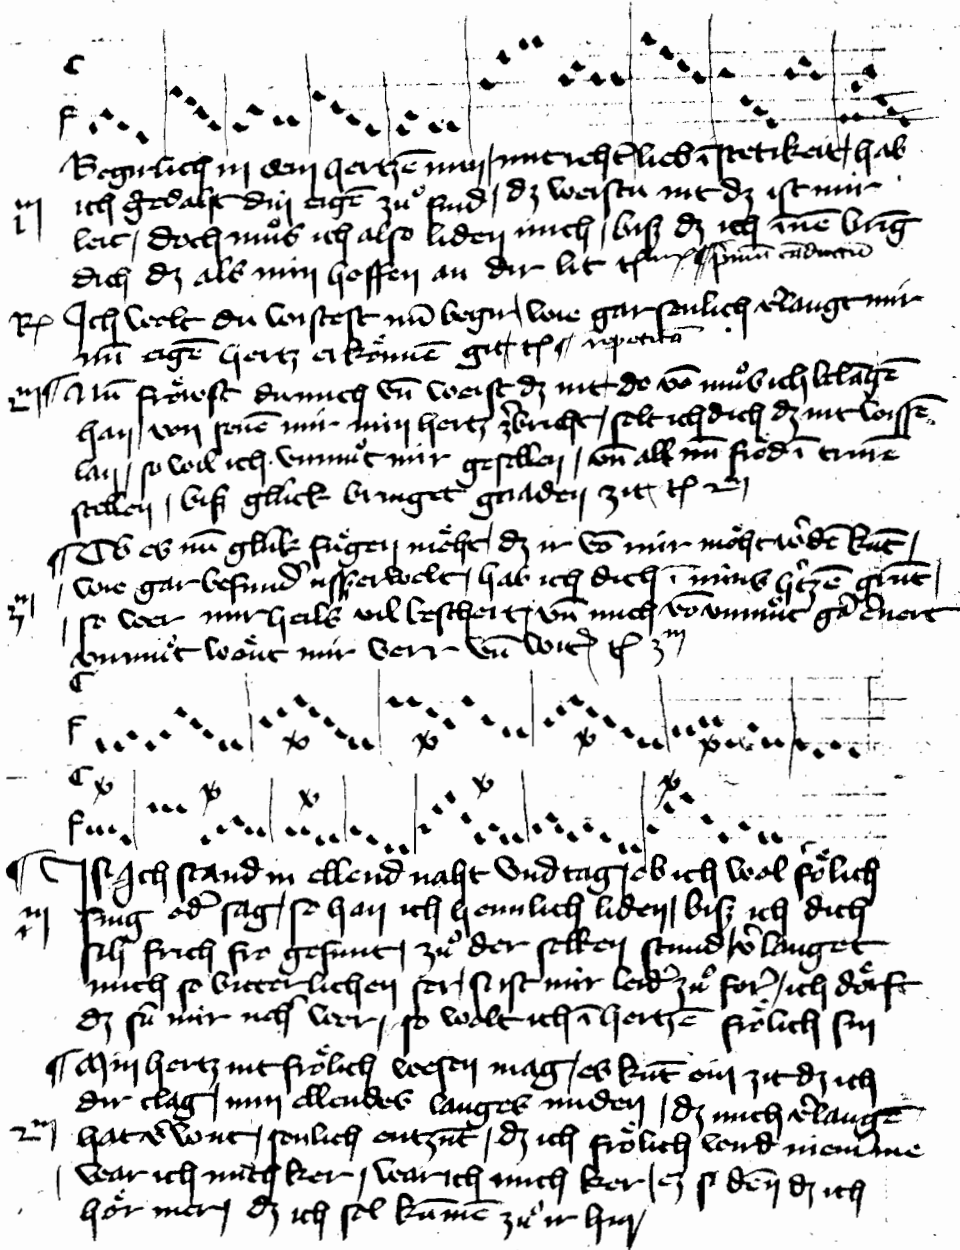 C
F
Begirlich in dem hertzē min / mit reht' lieb ī stetikeit / hab
ich gedaht din eigē zuͦ sind / dz weistu nit dz ist mir
leit / doch muͦs ich also liden mich / bisz dz ich īnē bring
dich dz als min hoffen an dir lit
Rͥ Ich wolt du wistest mī begir / wie gar senlich v'langt mir
mī eigē hertz erkoͤnnē git repeticio
Nū froͤwst du mich vn̄ weist dz nit do vō muͦs ich klagē
han / vn senē mir min hertz z'bricht / solt ich dich dz nit wissē
lan / so wil ich vnmuͦt mir gesellen / vn̄ all mī froͤd ī trurē
stellen / bisz glück bringet gnaden zit
Ob es mī glük fuͤgen moͤht / dz ir vō mir moͤht w'dē kūt /
wie gar besund' usserwelt / hab ich dich ī mins h'tzē grūt /
so wer mir heils vil beschert / vn̄ mich vō vnmuͦt g' ernert
vnmuͦt wont mir verr vn̄ wit
C
F
C
F
Ich stand in ellend naht vnd tag / ob ich wol froͤlich
sing od' sag / so han ich heimlich liden / bisz ich dich
sih frisch fro gesunt / zuͦ der selben stund / v'langet
mich so bitterlichen ser / si ist mir leid' zuͦ ver' / ich doͤrft
dz sū mir noch wer / so wolt ich ī hertzē froͤlich sin
Min hertz nit froͤlich wesen mag / es kūt ein zit dz ich
dir clag / min ellendes langes miden / dz mich v'langē
hat v'wūt / senlich entzūt / dz ich froͤlich wird niem'me
war ich mich ker / war ich mich ker / ez si den dz ich
hoͤr mer / dz ich sol kumē zuͦ ir hin /